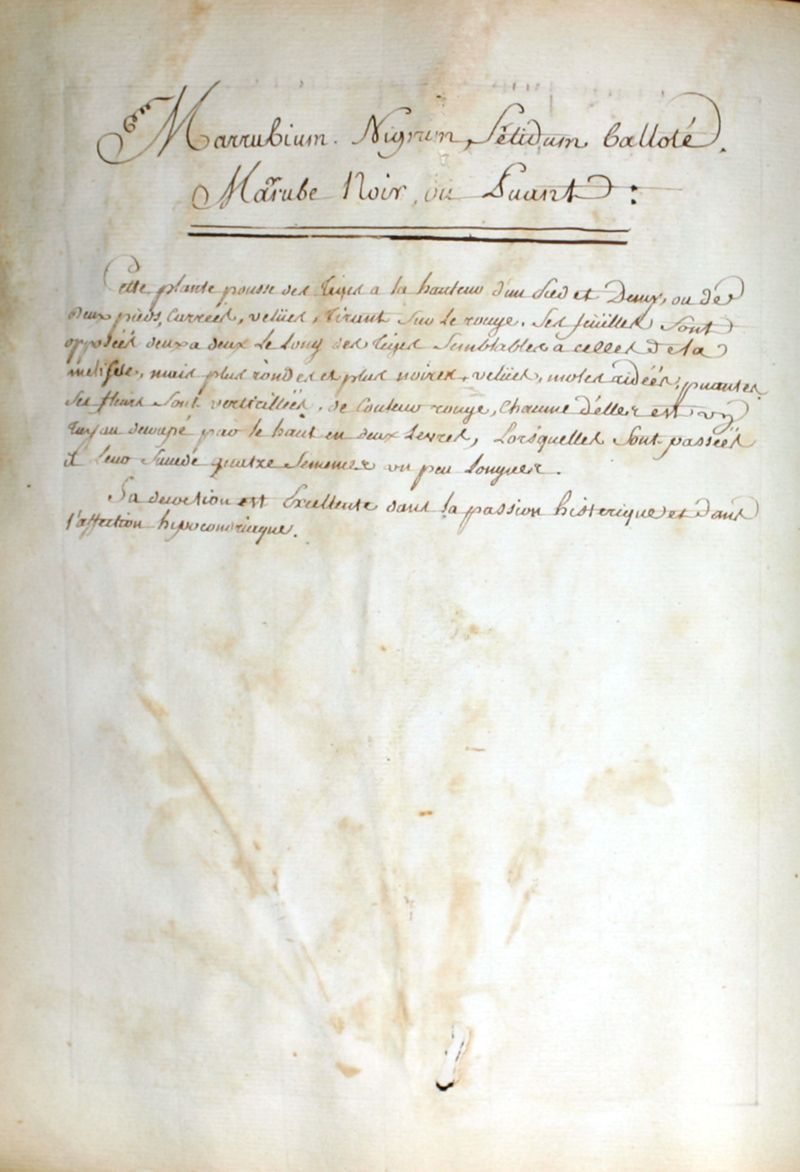 Marrubium Nigrum, fétidum balloté.
Marube Noir, ou Puant :
Cette plante pousse des tiges a la hauteur d'un pied et Demy, ou de
deux pieds, Carreés, velües, tirant sur le rouge. Ses feuilles sont
opposéés deux a deux le long des tiges Semblables a celles de la
melisse, mais plus rondes et plus noires, velües, moles ridéés, puantes
ses fleurs sont verticilléés, de couleur rouge, Chacune d'elles est vn
tuyau decoupé par le haut en deux levres, Lorsquelles sont passéés
il leur succede quatre semences vn peu longues.
Sa decoction est Excellente dans la passion histerique et dans
l'affection hipocondriaque.